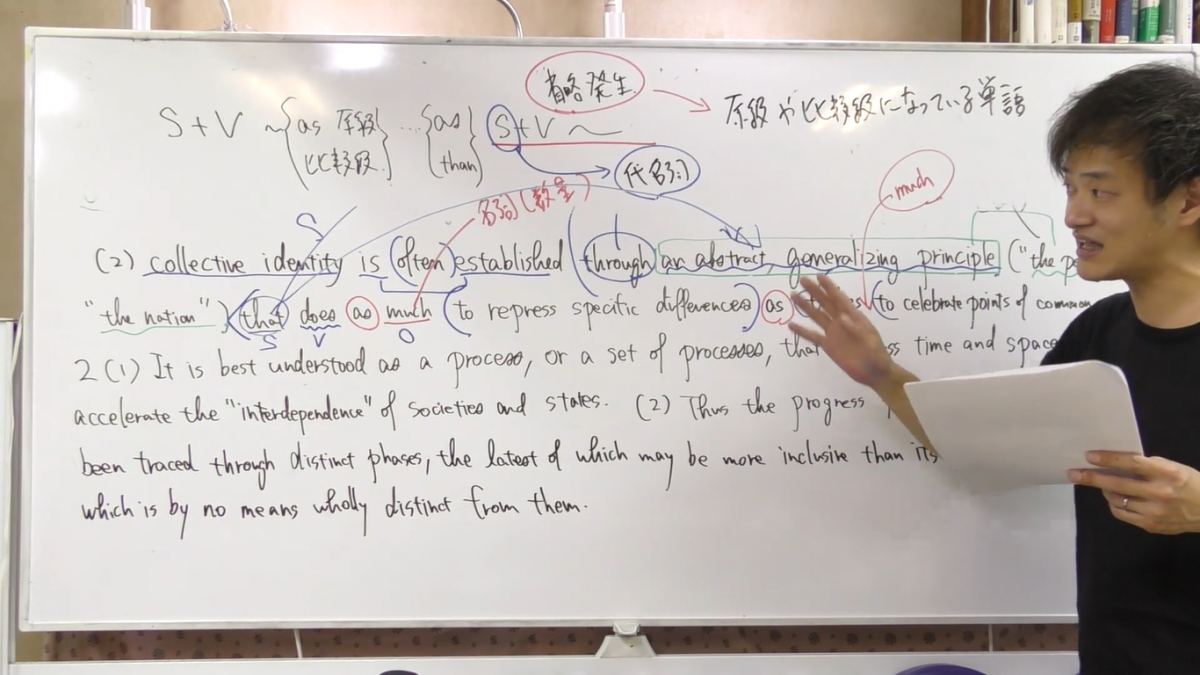 省略発生 → 原級や比較級になっている単語
S+V ~ {as 原級 … {as} S+V ~
比較級. than}
代名詞
名詞(数量)
much
S
(2) collective identity is often established through an abstract, generalizing principle ("the
"the nation") that does as much to repress specific differences as to celebrate points of
S V O
2 (1) It is best understood as a process, or a set of processes, time and space
accelerate the "interdependence" of societies and states. (2) Thus the progress
been traced through distinct phases, the latest of which may be more inclusive than
which is by no means wholly distinct from them.